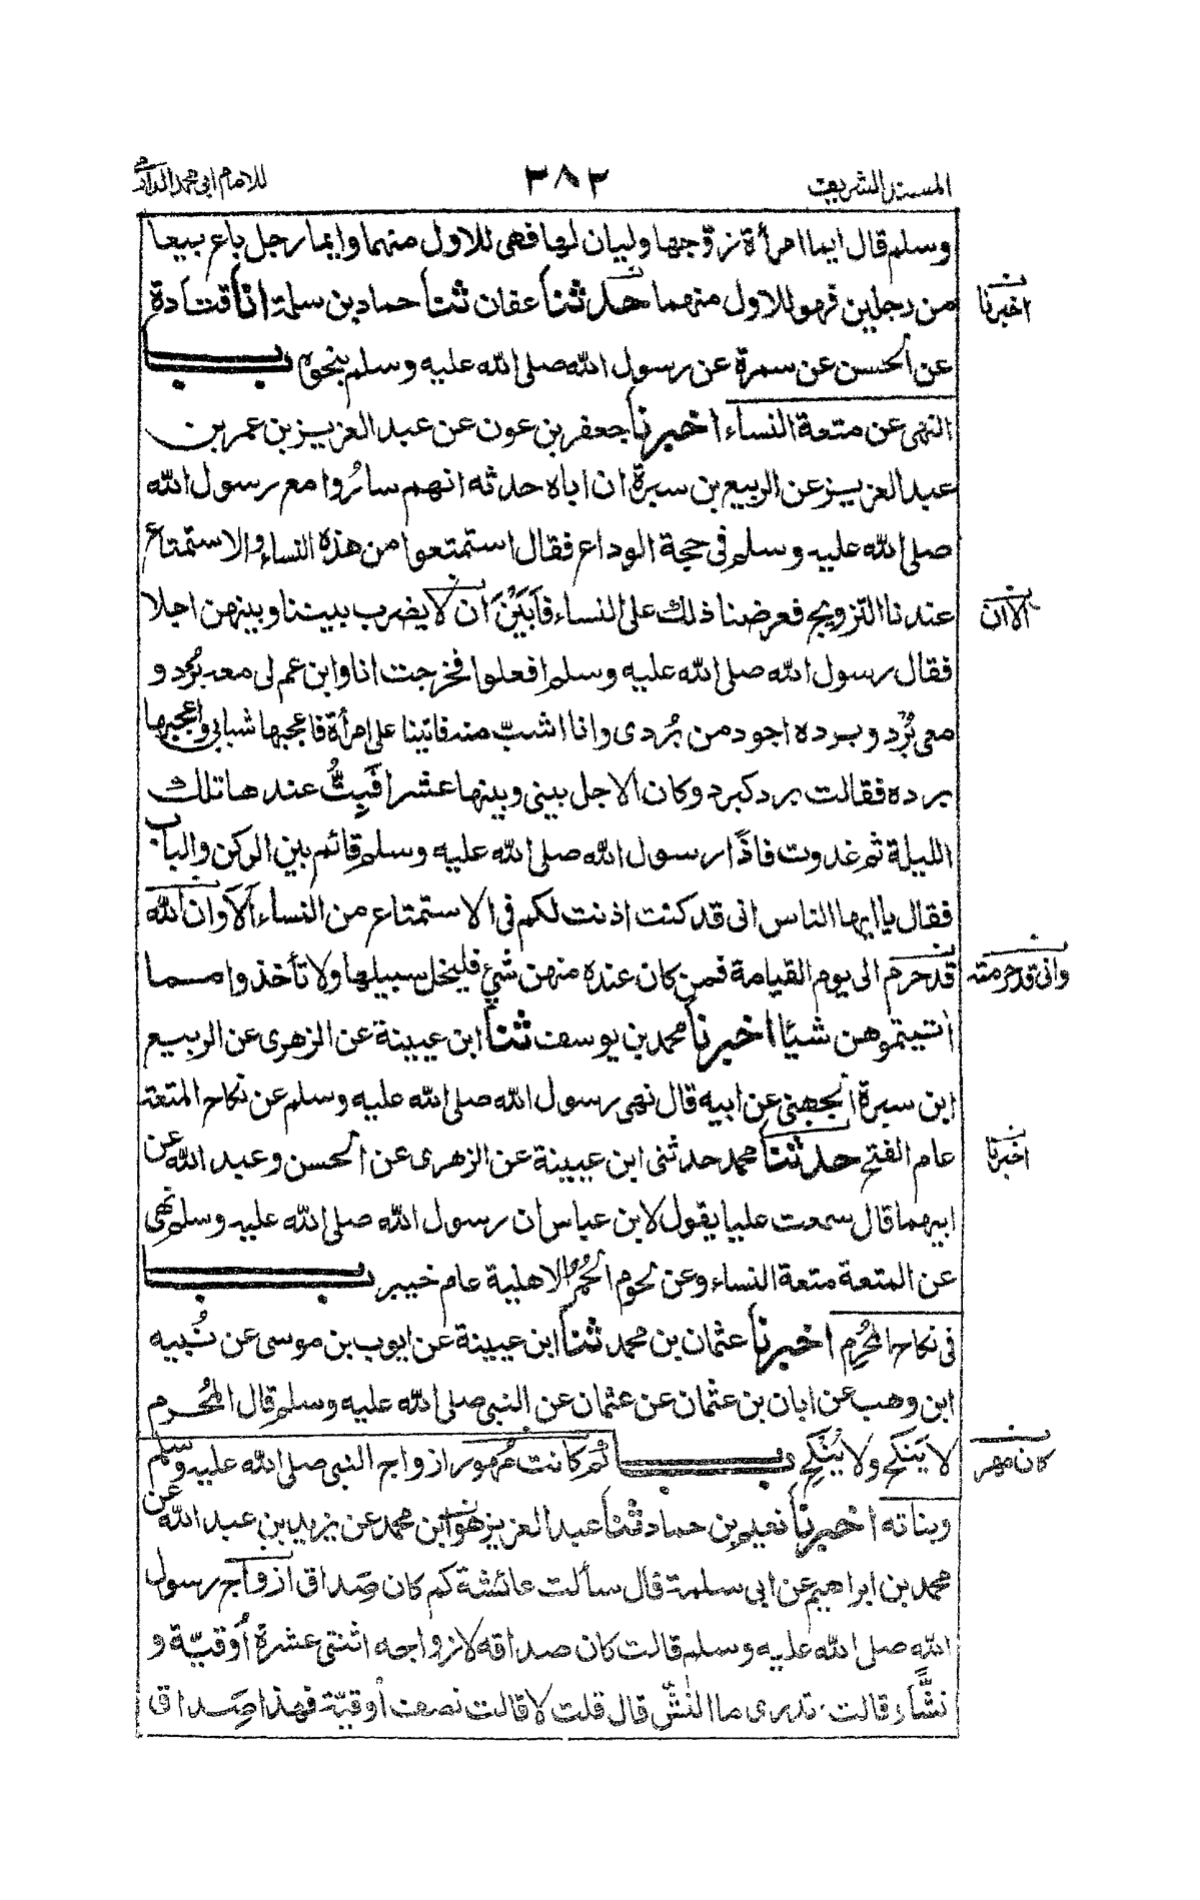 المسند الشريف ٣٨٢ للامام ابى محمد الدارمى
وسلم قال ايما امرأة زوّجها وليان لها فهى للاول منهما وايما رجل باع بيعا
من رجلين فهو للاول منهما حدثنا عفان ثنا حماد بن سلمة انا قتادة
اخبرنا
عن الحسن عن سمرة عن رسول الله صلى الله عليه وسلم بنحوه باب
النهى عن متعة النساء اخبرنا جعفر بن عون عن عبد العزيز بن عمر بن
عبد العزيز عن الربيع بن سبرة ان اباه حدثه انهم ساروا مع رسول الله
صلى الله عليه وسلم فى حجة الوداع فقال استمتعوا من هذه النساء والاستمتاع
عندنا التزويج فعرضنا ذلك على النساء فأبَيْنَ ان لا يضرب بيننا وبينهن اجلا
الا ان
فقال رسول الله صلى الله عليه وسلم افعلوا فخرجت انا وابن عم لى معه بُرد و
معى بُرد وبرده اجود من بُردى وانا اشبّ منه فاتينا على امرأة فاعجبها شبابى واعجبها
برده فقالت برد كبرد وكان الاجل بينى وبينها عشرا فَبِتُّ عندها تلك
الليلة ثم غدوت فاذا رسول الله صلى الله عليه وسلم قائم بين الركن والباب
فقال يا ايها الناس انى قد كنت اذنت لكم فى الاستمتاع من النساء اَلَا وان الله
قد حرم الى يوم القيامة فمن كان عنده منهن شئ فليخل سبيلها ولا تأخذوا مما
وانى قد حرمته
اٰتيتموهن شيئا اخبرنا محمد بن يوسف ثنا ابن عيينة عن الزهرى عن الربيع
ابن سبرة الجهنى عن ابيه قال نهى رسول الله صلى الله عليه وسلم عن نكاح المتعة
عام الفتح حدثنا محمد حدثنى ابن عيينة عن الزهرى عن الحسن وعبد الله عن
اخبرنا
ابيهما قال سمعت عليا يقول لابن عباس ان رسول الله صلى الله عليه وسلم نهى
عن المتعة متعة النساء وعن لحوم الحُمُر الاهلية عام خيبر باب
فى نكاح المُحْرِم اخبرنا عثمان بن محمد ثنا ابن عيينة عن ايوب بن موسى عن نُبيه
ابن وهب عن ابان بن عثمان عن عثمان عن النبى صلى الله عليه وسلم قال المُحْرم
لا يَنكح ولا يُنْكِح باب كم كانت مُهور ازواج النبى صلى الله عليه وسلم
كان مهر
وبناته اخبرنا نعيم بن حماد ثنا عبد العزيز هو ابن محمد عن يزيد بن عبد الله عن
محمد بن ابراهيم عن ابى سلمة قال سألت عائشة كم كان صِداق ازواج رسول
الله صلى الله عليه وسلم قالت كان صداقه لازواجه اثنتى عشرة أوقيّة و
نشًّا وقالت تدرى ما النشّ قال قلت لا قالت نصف أوقيّة فهذا صِداق